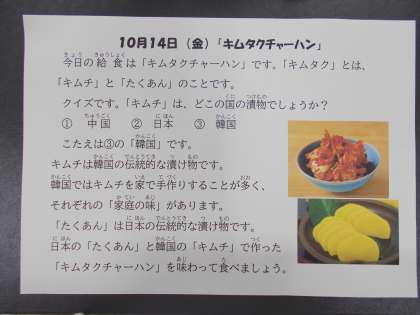 10月14日（金）「キムタクチャーハン」
今日の給食は「キムタクチャーハン」です。「キムタク」とは、
「キムチ」と「たくあん」のことです。
クイズです。「キムチ」は、どこの国の漬物でしょうか？
① 中国　② 日本　③ 韓国
こたえは③の「韓国」です。
キムチは韓国の伝統的な漬け物です。
韓国ではキムチを家で手作りすることが多く、
それぞれの「家庭の味」があります。
「たくあん」は日本の伝統的な漬け物です。
日本の「たくあん」と韓国の「キムチ」で作った
「キムタクチャーハン」を味わって食べましょう。